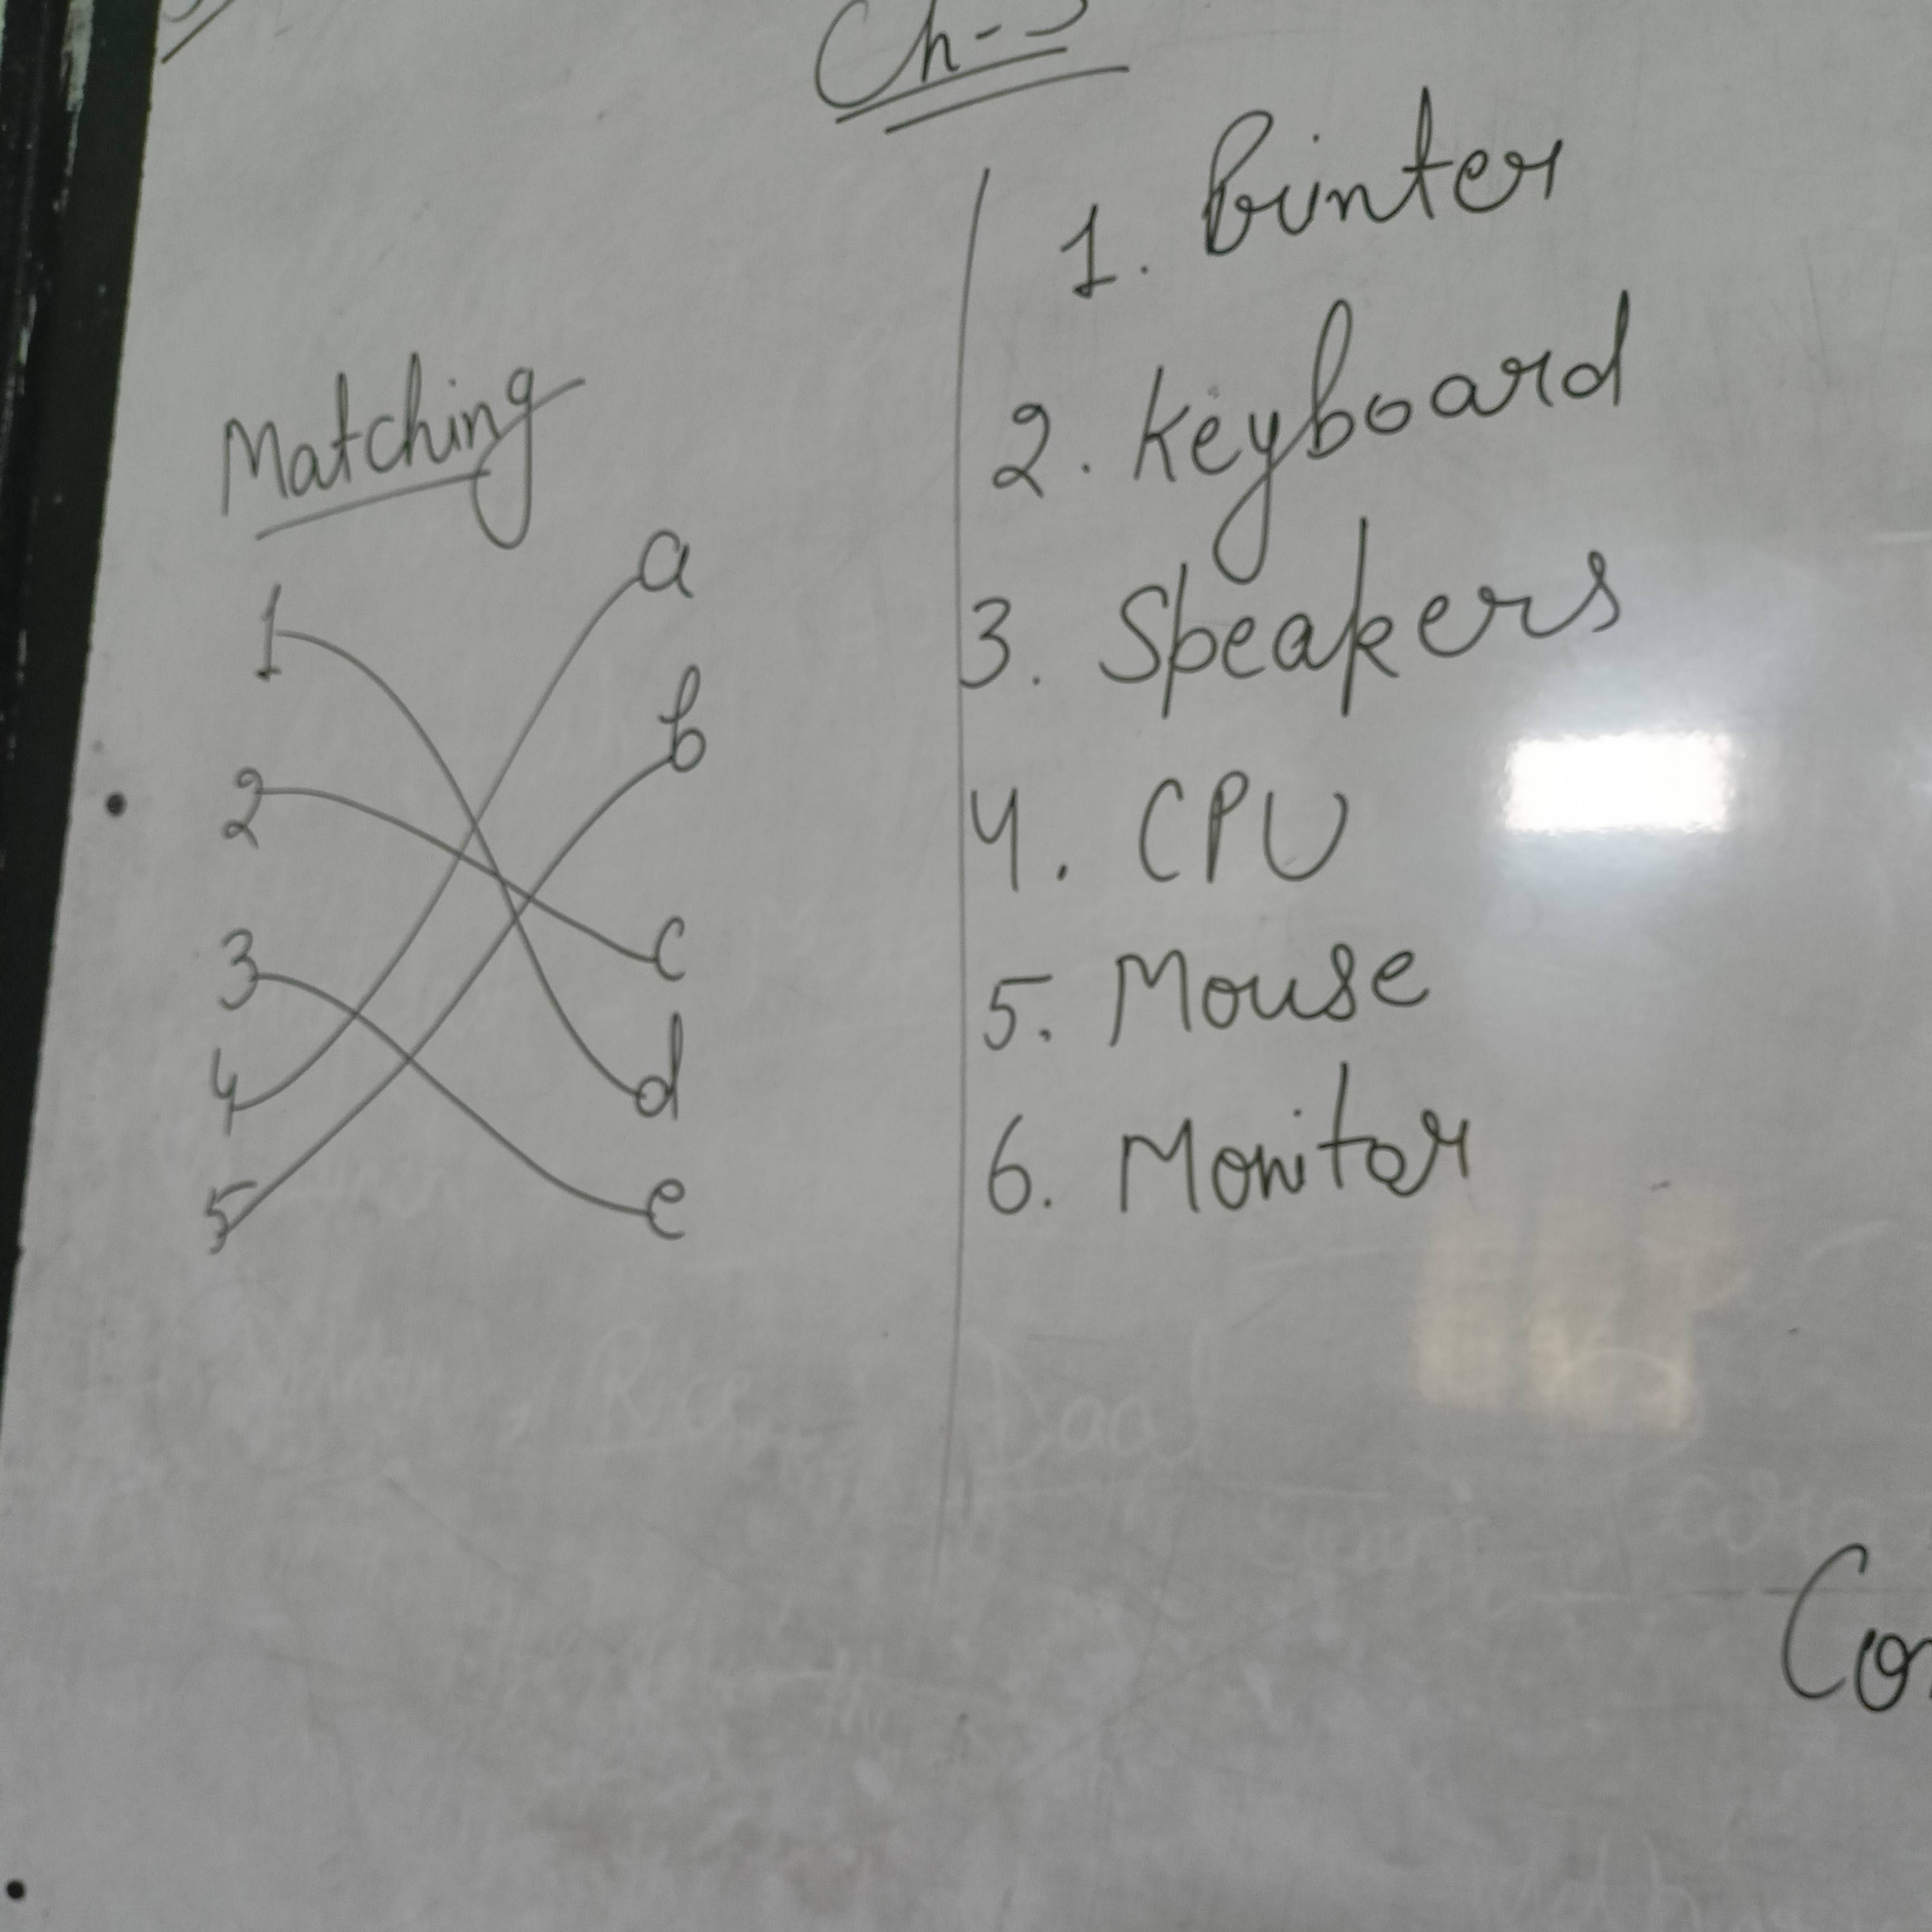 Ch-
Matching
1 a
2 b
3 c
4 d
5 e
1. Printer
2. Keyboard
3. Speakers
4. CPU
5. Mouse
6. Monitor